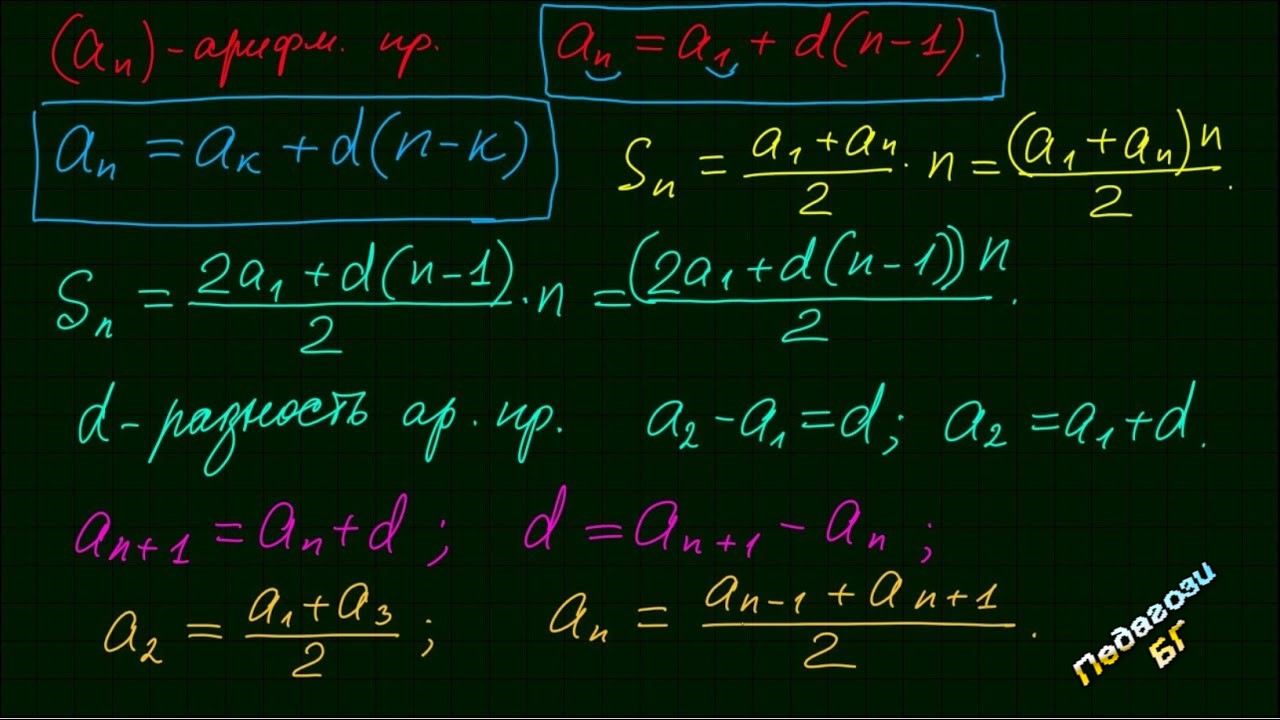 (aₙ) - арифм. пр. aₙ = a₁ + d(n-1).
aₙ = aₖ + d(n-к) Sₙ = (a₁ + aₙ)/2 · n = (a₁ + aₙ)n/2.
Sₙ = (2a₁ + d(n-1))/2 · n = (2a₁ + d(n-1))n/2.
d - разность ар. пр. a₂ - a₁ = d; a₂ = a₁ + d.
aₙ₊₁ = aₙ + d; d = aₙ₊₁ - aₙ;
a₂ = (a₁ + a₃)/2; aₙ = (aₙ₋₁ + aₙ₊₁)/2.
Педагози
БГ